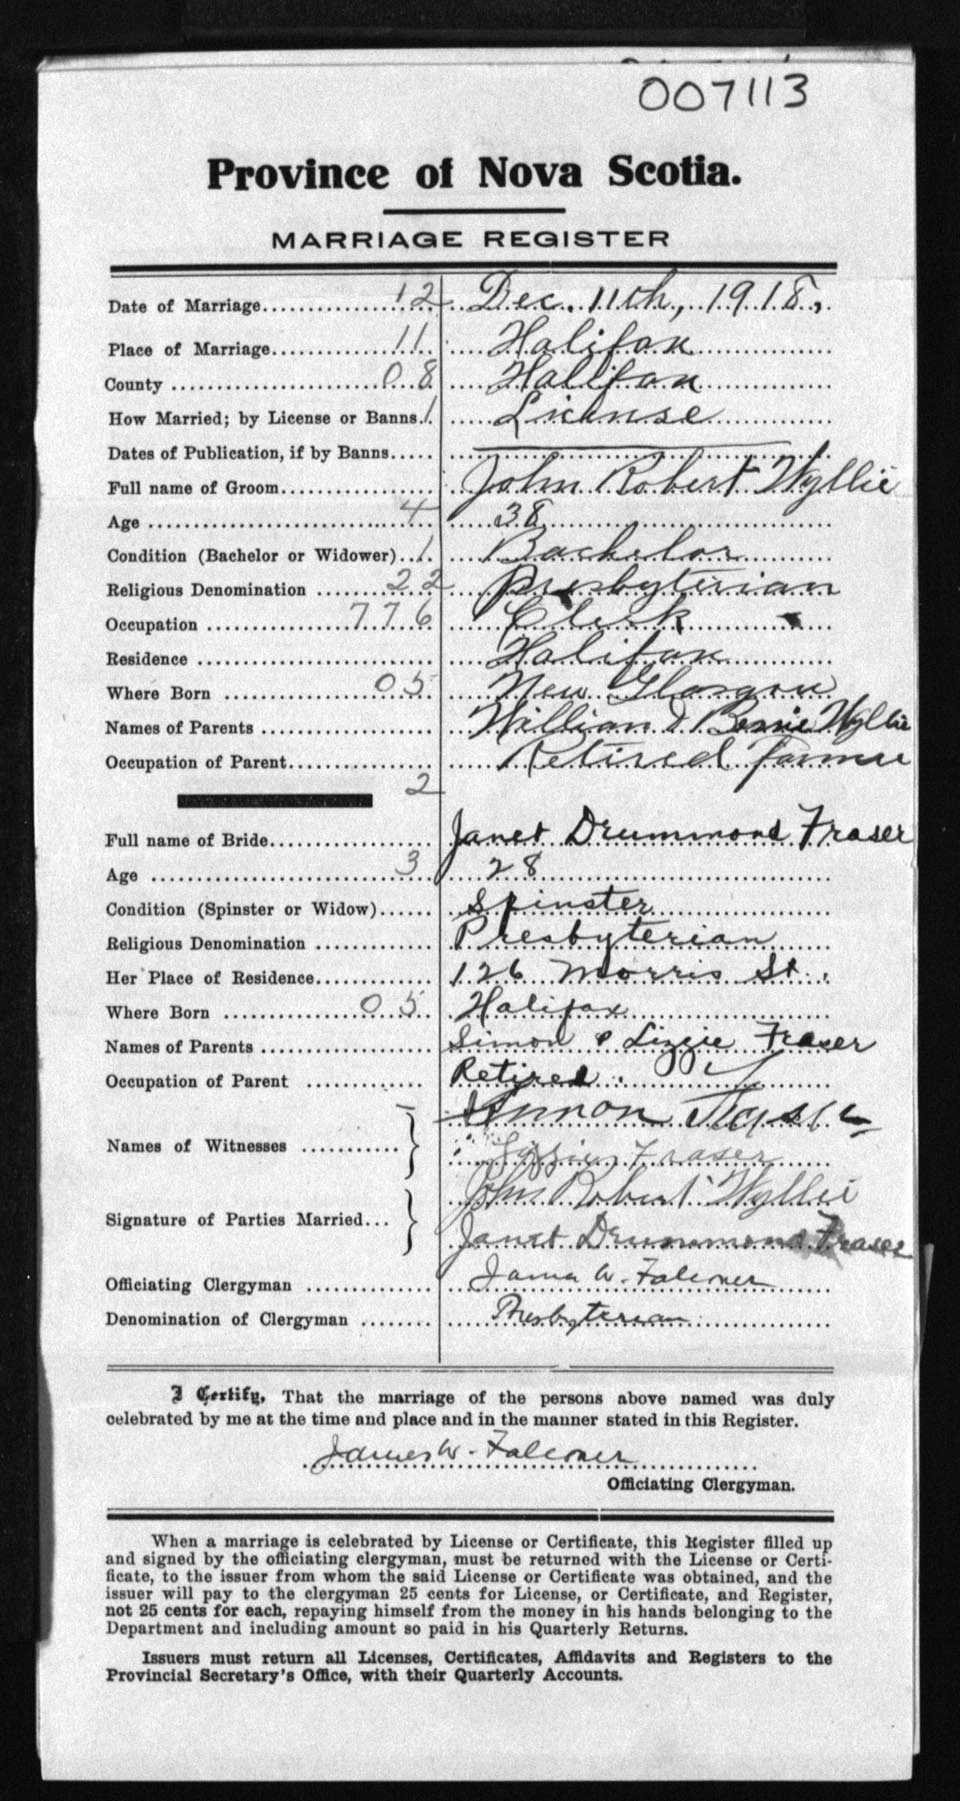 007113
Province of Nova Scotia.
MARRIAGE REGISTER
Date of Marriage 12 Dec. 11th, 1918,
Place of Marriage 11 Halifax
County 08 Halifax
How Married; by License or Banns 1 License
Dates of Publication, if by Banns
Full name of Groom John Robert Wyllie
Age 4 38
Condition (Bachelor or Widower) 1 Bachelor
Religious Denomination 22 Presbyterian
Occupation 776 Clerk
Residence Halifax
Where Born 05 New Glasgow
Names of Parents William & Bessie Wyllie
Occupation of Parent Retired Farmer
2
Full name of Bride Janet Drummond Fraser
Age 3 28
Condition (Spinster or Widow) Spinster
Religious Denomination Presbyterian
Her Place of Residence 126 Morris St.
Where Born 05 Halifax
Names of Parents Simon & Lizzie Fraser
Occupation of Parent Retired.
Simon Fraser
Names of Witnesses
Lizzie Fraser
John Robert Wyllie
Signature of Parties Married
Janet Drummond Fraser
Officiating Clergyman James W. Falconer
Denomination of Clergyman Presbyterian
I Certify, That the marriage of the persons above named was duly
celebrated by me at the time and place and in the manner stated in this Register.
James W. Falconer
Officiating Clergyman.
When a marriage is celebrated by License or Certificate, this Register filled up
and signed by the officiating clergyman, must be returned with the License or Certi-
ficate, to the issuer from whom the said License or Certificate was obtained, and the
issuer will pay to the clergyman 25 cents for License, or Certificate, and Register,
not 25 cents for each, repaying himself from the money in his hands belonging to the
Department and including amount so paid in his Quarterly Returns.
Issuers must return all Licenses, Certificates, Affidavits and Registers to the
Provincial Secretary's Office, with their Quarterly Accounts.